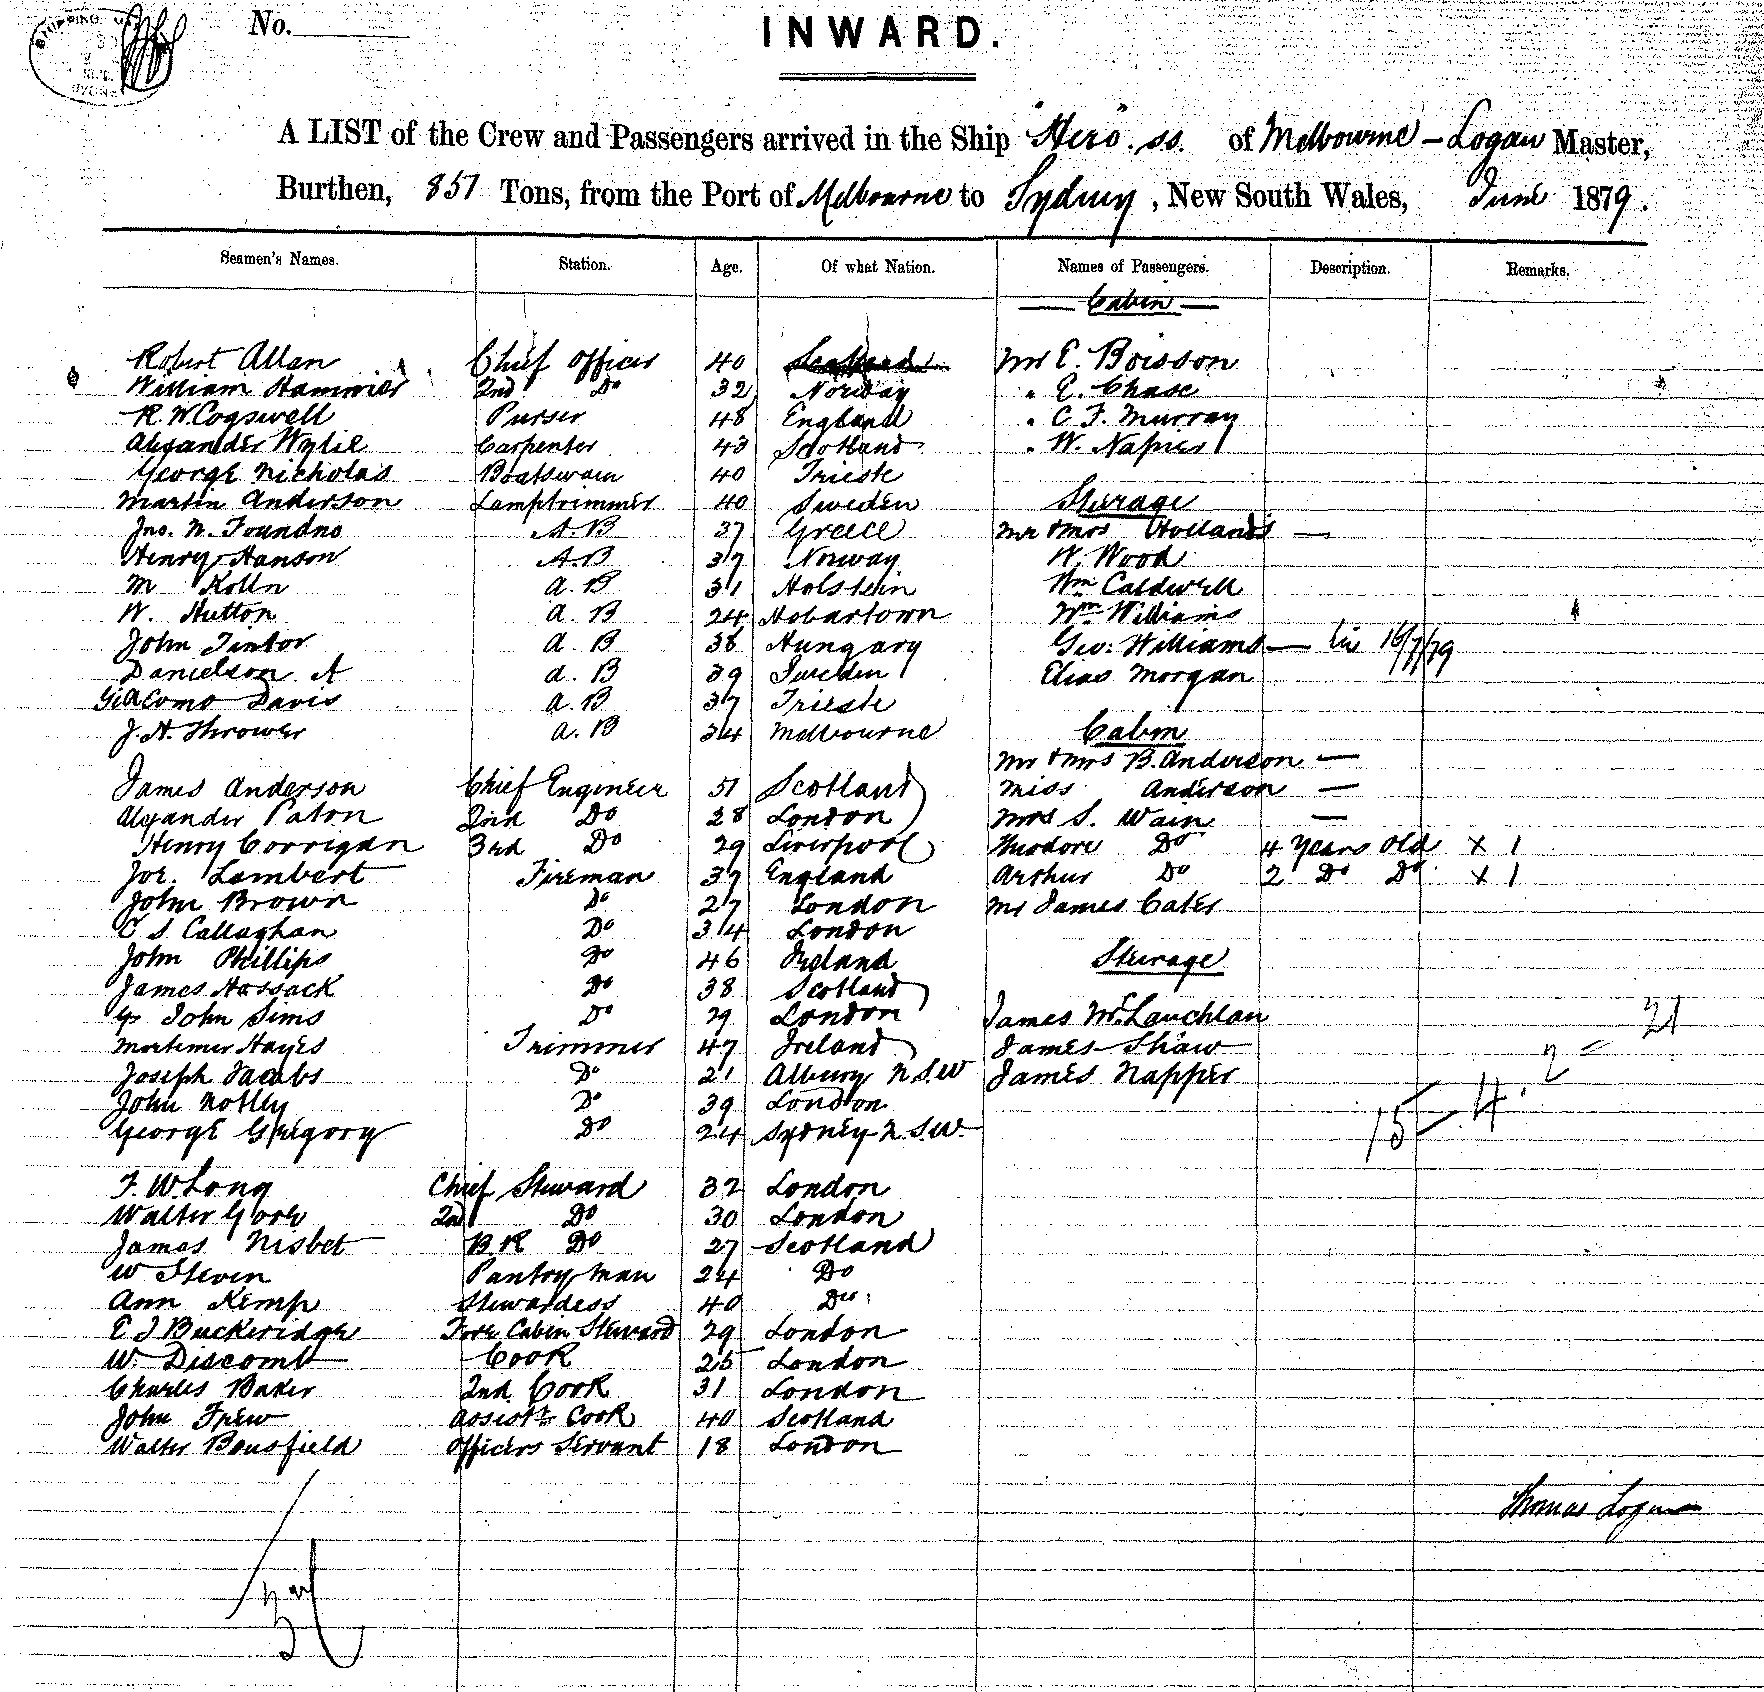 No.
INWARD.
A LIST of the Crew and Passengers arrived in the Ship "Hero" ss. of Melbourne - Logan Master,
Burthen, 851 Tons, from the Port of Melbourne to Sydney, New South Wales, June 1879.
Seamen's Names. Station. Age. Of what Nation. Names of Passengers. Description. Remarks.
Cabin
Robert Allan Chief Officer 40 Mr E. Boisson
William Hammier 2nd Do 32 Norway " E. Chase
R. W. Cogswell Purser 48 England " C F. Murray
Alexander Wylie Carpenter 43 Scotland " W. Napier
George Nicholas Boatswain 40 Trieste
Martin Anderson Lamptrimmer 40 Sweden Sterage
Jno. N. A.B 37 Greece Mr & Mrs Hollands —
Henry Hanson A.B 37 Norway W. Wood
M Kolln A.B 31 Holstein Wm Caldwell
W. Hutton A.B 24 Hobartown Wm Williams
John Tintor A.B 38 Hungary Geo: Williams — 16/7/79
Danielson A A.B 39 Sweden Elias Morgan
Giacomo Davis A.B 37 Trieste
J. A. Thrower A.B 34 Melbourne Cabin
Mr & Mrs B. Anderson —
James Anderson Chief Engineer 51 Scotland Miss Anderson —
Alexander Paton 2nd Do 28 London Mrs S. Wain —
Henry Corrigan 3rd Do 29 Liverpool Theodore Do 4 Years Old x 1
Jos. Lambert Fireman 37 England Arthur Do 2 Do Do x 1
John Brown Do 27 London Mr James Cater
C S. Callaghan Do 34 London
John Phillips Do 46 Ireland Steerage
James Hossack Do 38 Scotland
John Sims Do 29 London James McLauchlan
21
Mortimer Hayes Trimmer 47 Ireland James Shaw
2 =
Joseph Jacobs Do 21 Albury N.S.W James Napper
John Notley Do 39 London
15 - 4
George Gregory Do 24 Sydney N.S.W.
F. W. Long Chief Steward 32 London
Walter Gore 2nd Do 30 London
James Nisbet B.R Do 27 Scotland
W Steven Pantry man 24 Do
Ann Kemp Stewardess 40 Do
E J Buckeridge Fore Cabin Steward 29 London
W. Discomb Cook 25 London
Charles Baker 2nd Cook 31 London
John Frew Assistt Cook 40 Scotland
Walter Bousfield Officers Servant 18 London
Thomas Logan